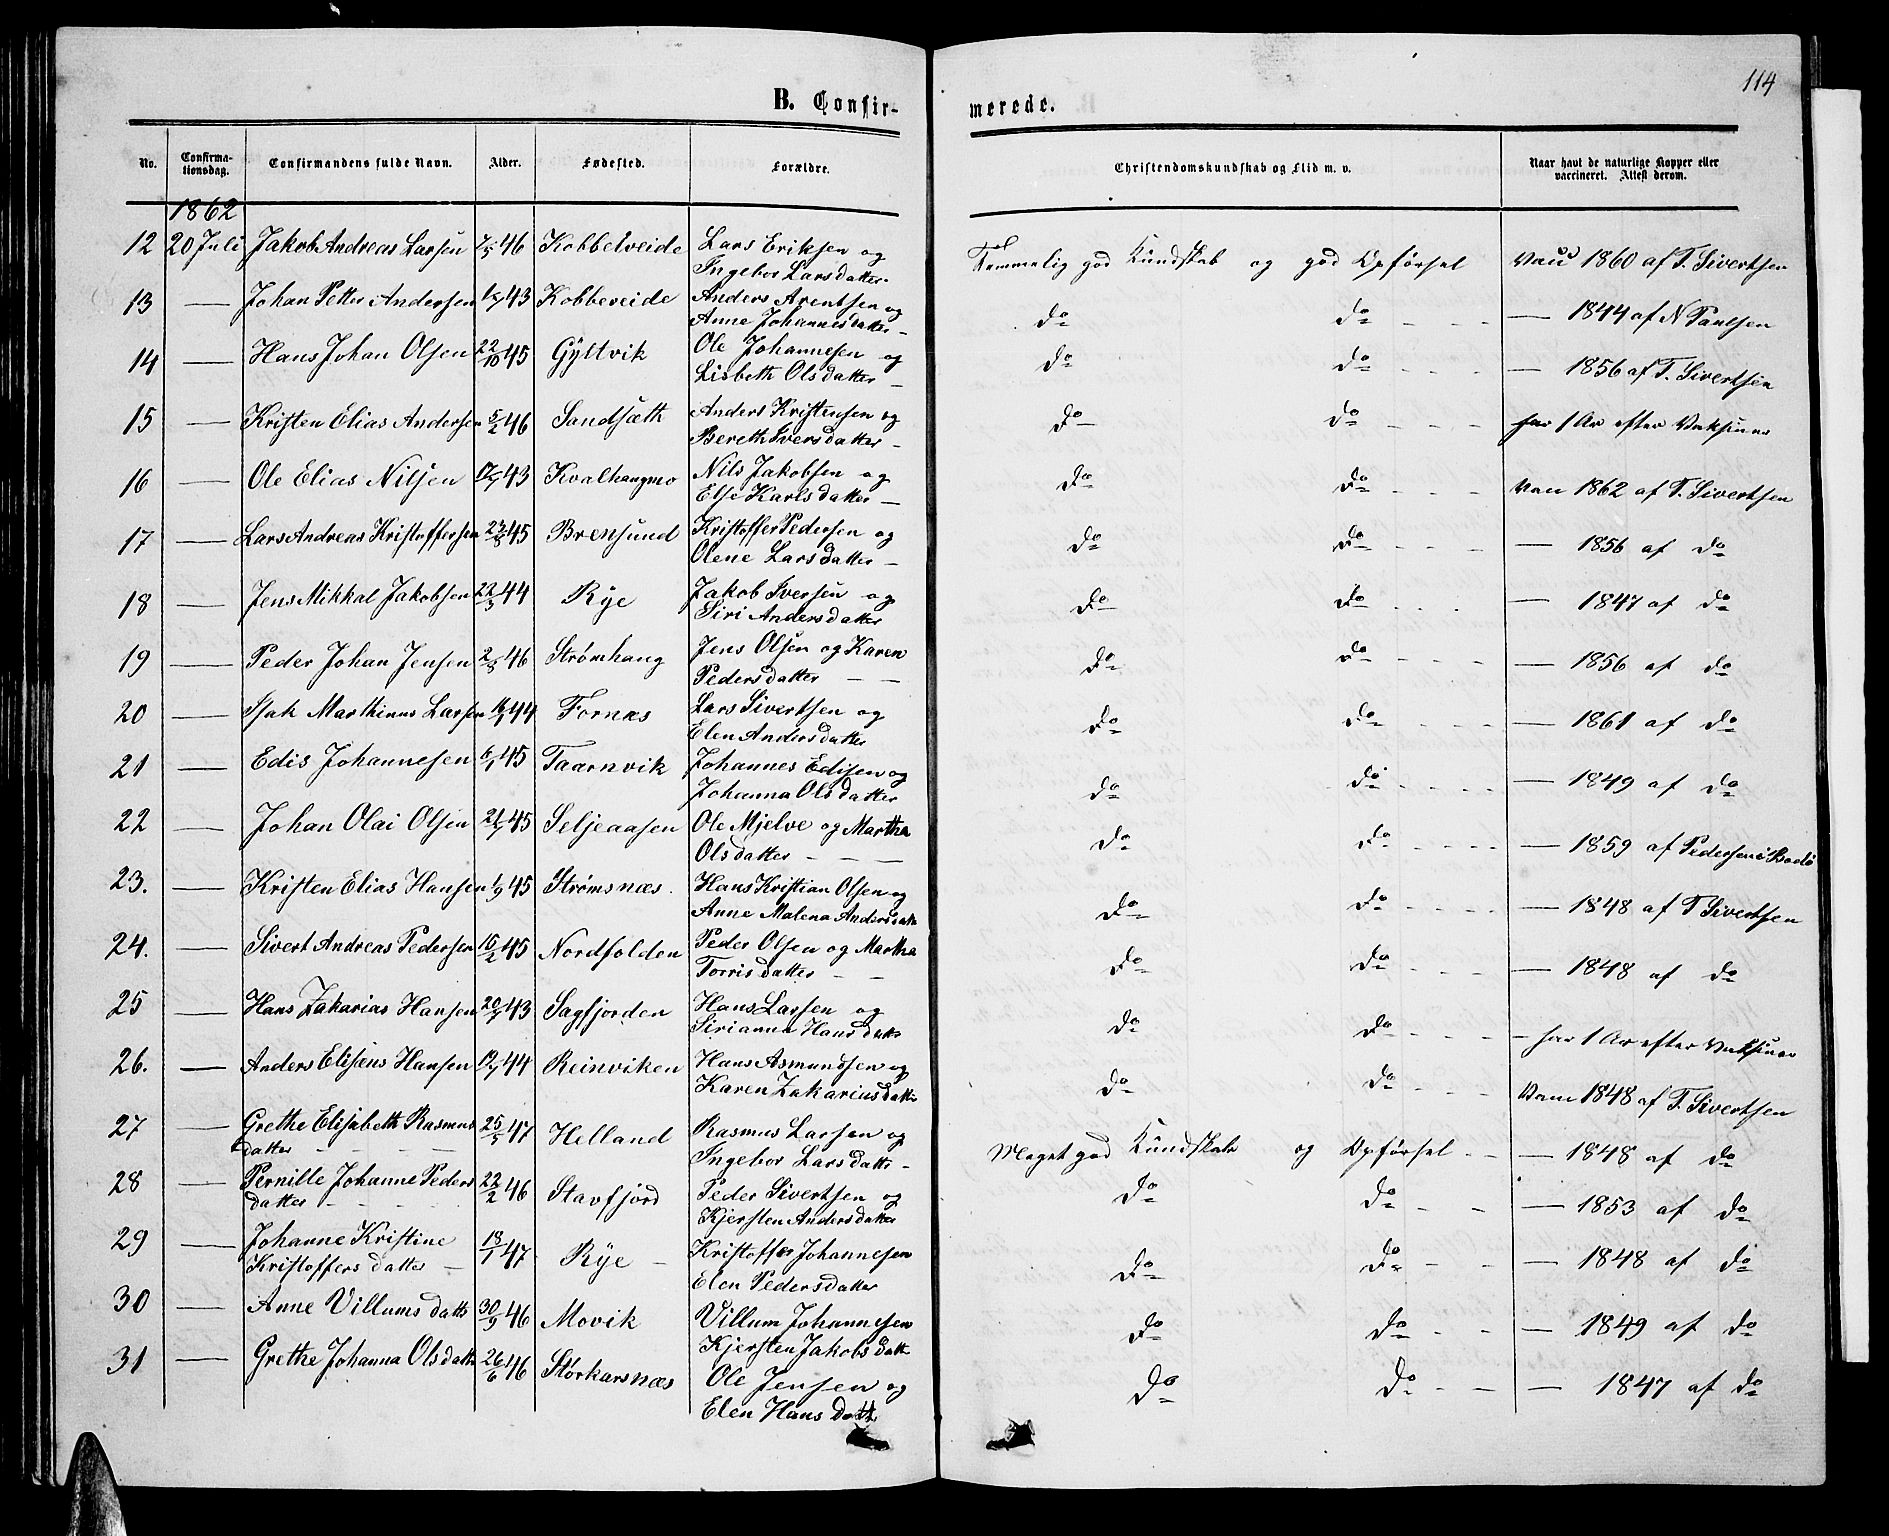 114
B. Confir-
merede.
No.
Confirma-
tionsdag.
Confirmandens fulde Navn.
Alder.
Fødested.
Forældre.
Christendomskundskab og Flid m. v.
Naar havt de naturlige Kopper eller
vaccineret. Attest derom.
1862
12 20 Juli Jakob Andreas Larsen 46 Kobbelveide Lars Eriksen og Temmelig god Kundskab og god Opførsel 1860 af T. Sivertsen
Ingebor Larsdatter -
13 — Johan Petter Andersen 43 Kobbeveide Anders Arentsen og do do - - - — 1844 af N Paulsen
Anne Johannesdatter -
14 — Hans Johan Olsen 22/10 45 Gyltvik Ole Johannesen og do do - - - — 1856 af T. Sivertsen
Lisbeth Olsdatter -
15 — Kristen Elias Andersen 5/2 46 Sandsæth Anders Kristensen og do do - - - har 1 Ar efter Vaksiner
Bereth Iversdatter -
16 — Ole Elias Nilsen 43 Kvalhangmo Nils Jakobsen og do do - - - 1862 af T. Sivertsen
Else Karlsdatter —
17 — Lars Andreas Kristoffersen 23/8 45 Brensund Kristoffer Pedersen og do do - - - — 1856 af do
Olene Larsdatter -
18 — Jens Mikkal Jakobsen 22/3 44 Rye Jakob Iversen og do do - - - — 1847 af do
Siri Andersdatter
19 — Peder Johan Jensen 2/8 46 Strømhang Jens Olsen og Karen do do - - - — 1856 af do
Pedersdatter — —
20 — Isak Marthinus Larsen 44 Fornæs Lars Sivertsen og do do - - - — 1861 af do
Elen Andersdatter
21 — Edis Johannesen 6/1 45 Taarnvik Johannes Edisen og do do - - - - — 1849 af do
Johanna Olsdatter
22 — Johan Olai Olsen 45 Seljeaasen Ole Mjelve og Martha do do - - - - — 1859 af Pedersen i Bodø
Olsdatter - — —
23. — Kristen Elias Hansen 1/9 45 Strømsnæs. Hans Kristian Olsen og do do - - - - — 1848 af T Sivertsen
Anne Malena Andersdatr
24. — Sivert Andreas Pedersen 15/2 45 Nordfolden Peder Olsen og Martha do do - - - — 1848 af do
Torrisdatter — —
25 — Hans Zakarias Hansen 43 Sagfjorden Hans Larsen og do do - - - - har 1 Ar efter Vaksiner
Sirianna Hansdatr
26. — Anders Elisæus Hansen 44 Reinviken Hans Asmundsen og do do - - 1848 af T. Sivertsen
Karen Zakariusdattr
27 — Grethe Elisabeth Rasmus 25/5 47 Helland Rasmus Larsen og Meget god Kundskab og Opførsel - - — 1848 af do
datter - - - — Ingebor Larsdattr -
28 — Pernille Johanne Peders 22/2 46 Stavfjord Peder Sivertsen og do do - - — 1853 af do
datter - - - - Kjersten Andersdatter
29 — Johanne Kristine 18/1 47 Rye - Kristoffer Johannesen do do - - — 1848 af do
Kristoffersdatter — Elen Pedersdatter
30 — Anne Villumsdattr 30/9 46 Movik Villum Johannesen do do - - — 1849 af do
Kjersten Jakobsdattr
31 — Grethe Johanna Olsdattr 26/6 46 Størkarsnæs Ole Jensen og do do - - — 1847 af do
Elen Hansdatt